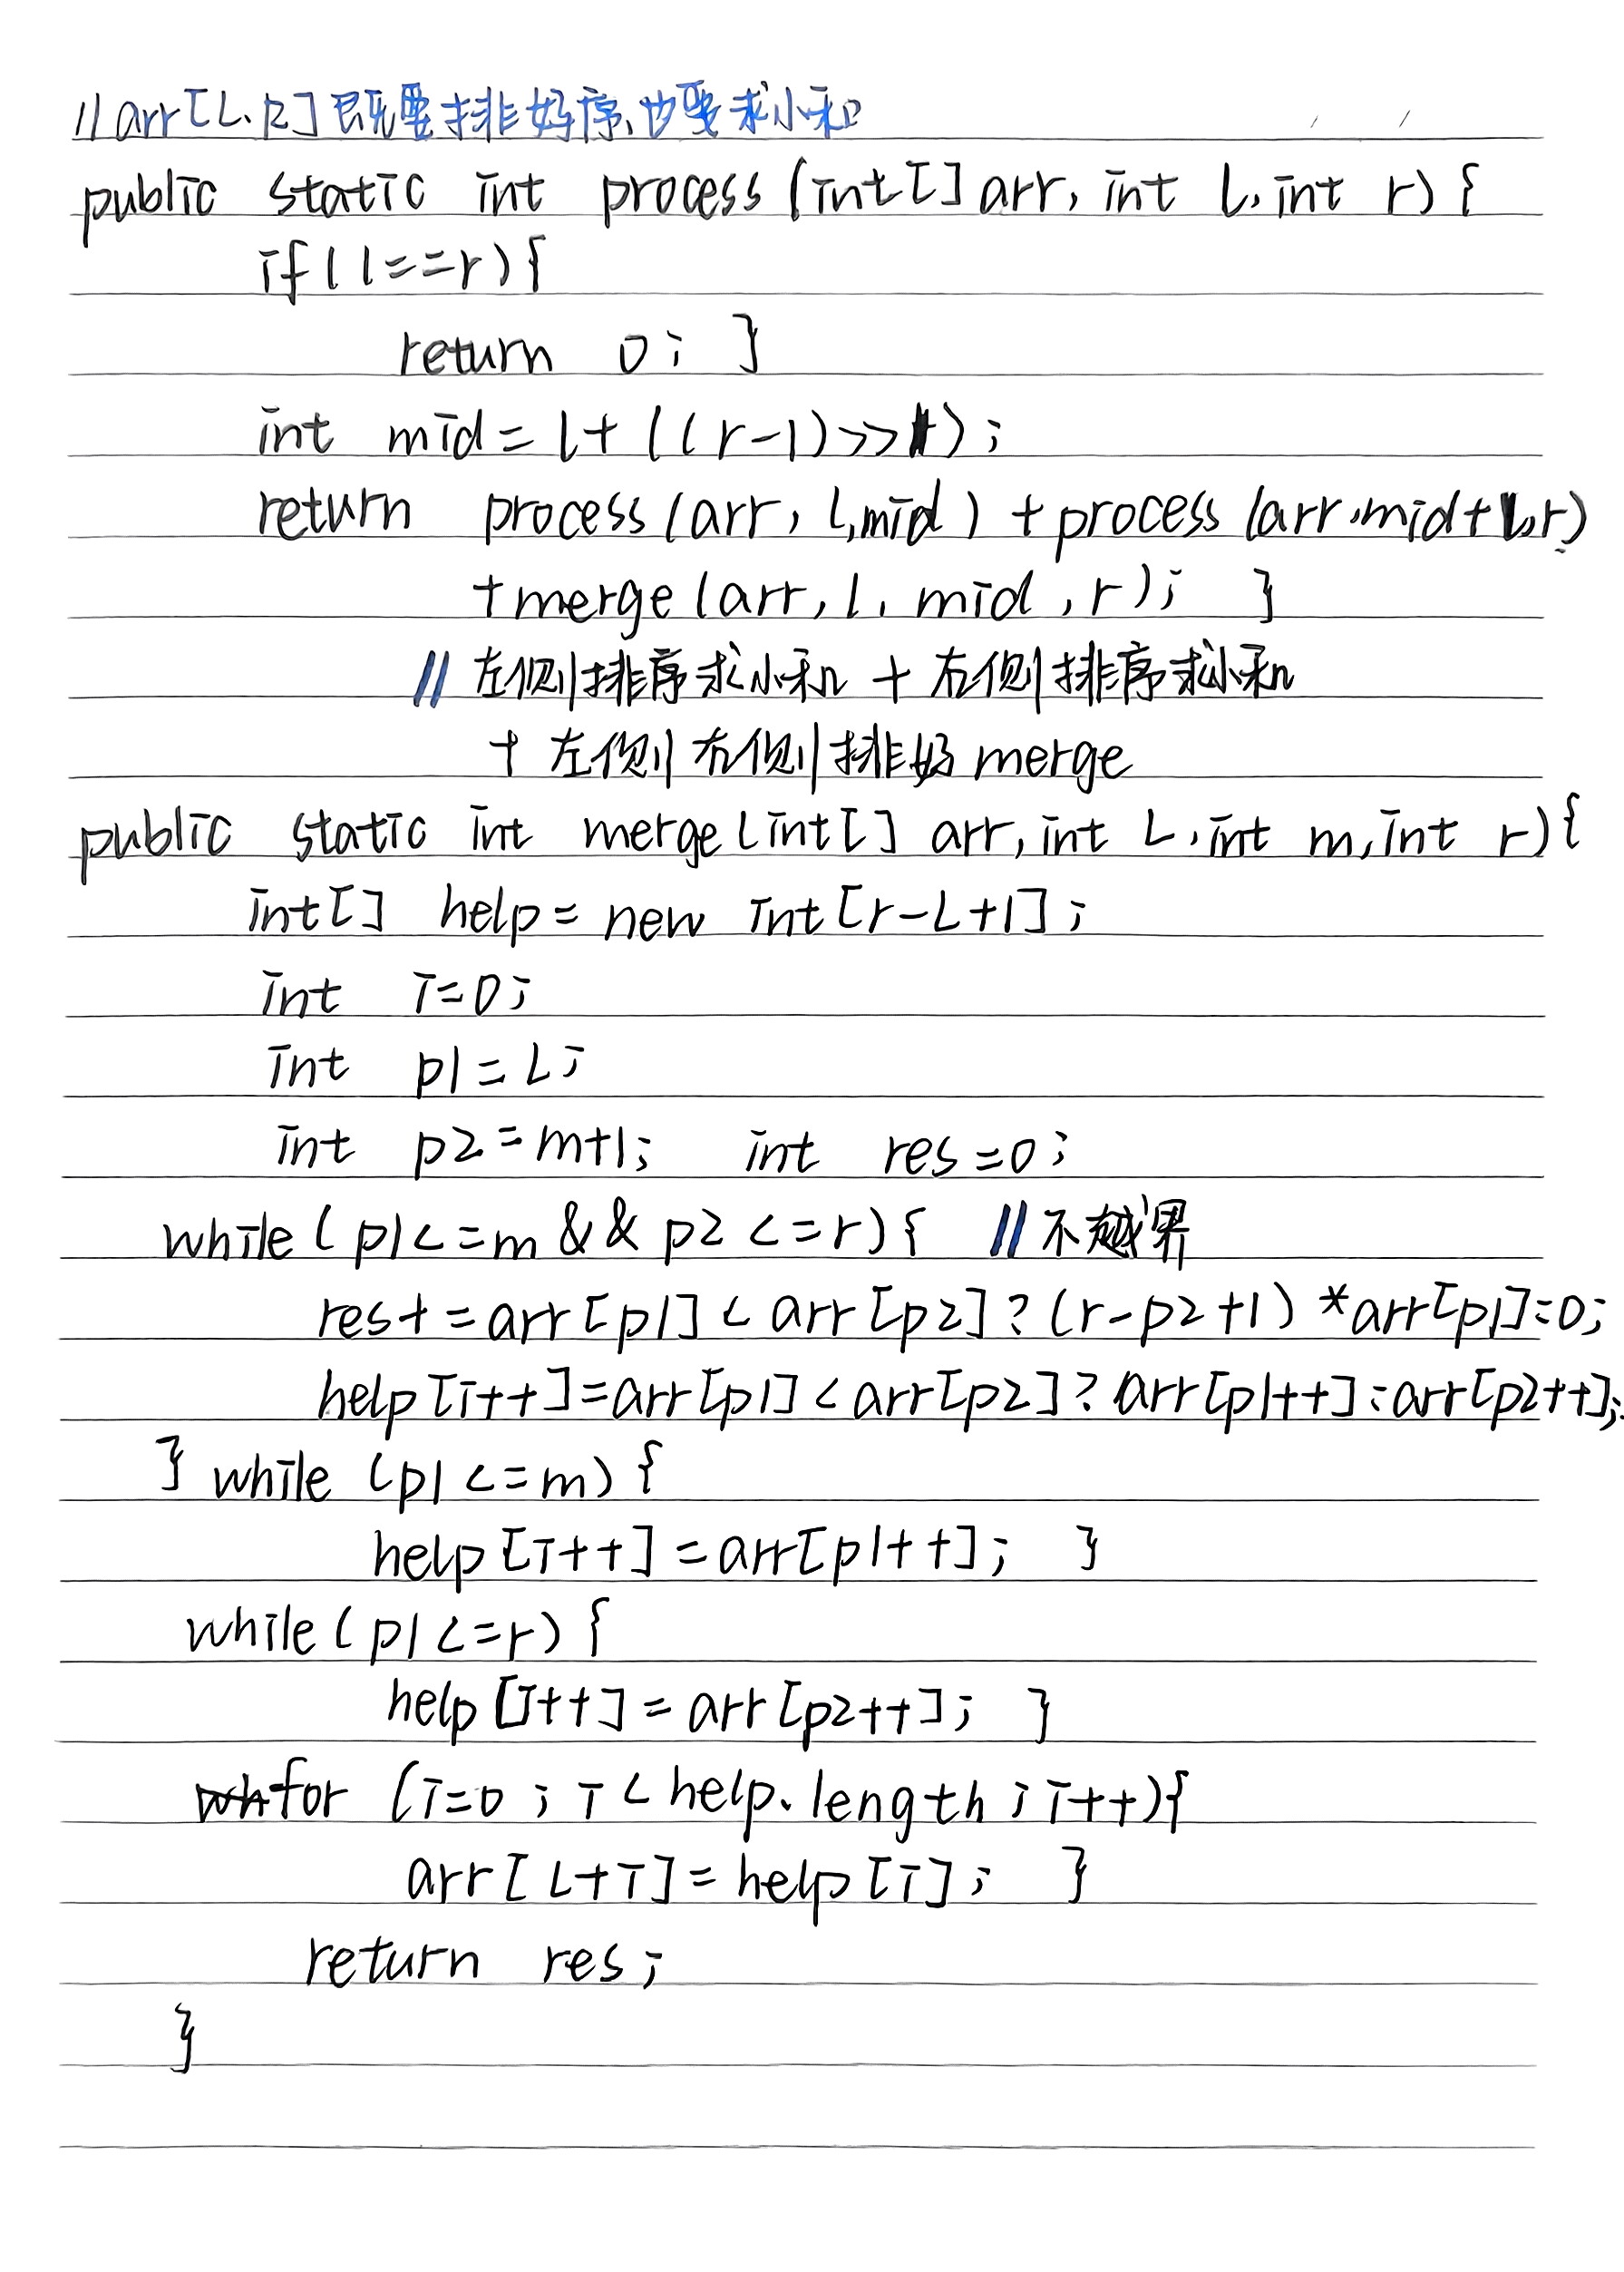 //arr[L.R]既要排好序、也要求小和
public static int process(int[]arr, int l, int r){
if(l==r){
return 0; }
int mid=l+((r-l)>>1);
return process(arr, l,mid) +process(arr,mid+1,r)
+merge(arr, l, mid, r); }
// 左侧排序求小和 + 右侧排序求小和
+ 左侧右侧排好merge
public static int merge(int[] arr, int L, int m, int r){
int[] help=new int[r-L+1];
int i=0;
int p1=L;
int p2=m+1; int res=0;
while(p1<=m && p2<=r){ //不越界
res+=arr[p1]<arr[p2]?(r-p2+1)*arr[p1]:0;
help[i++]=arr[p1]<arr[p2]?arr[p1++]:arr[p2++];
} while (p1<=m){
help[i++]=arr[p1++]; }
while(p1<=r){
help[i++]=arr[p2++]; }
for (i=0; i<help.length; i++){
arr[L+i]=help[i]; }
return res;
}